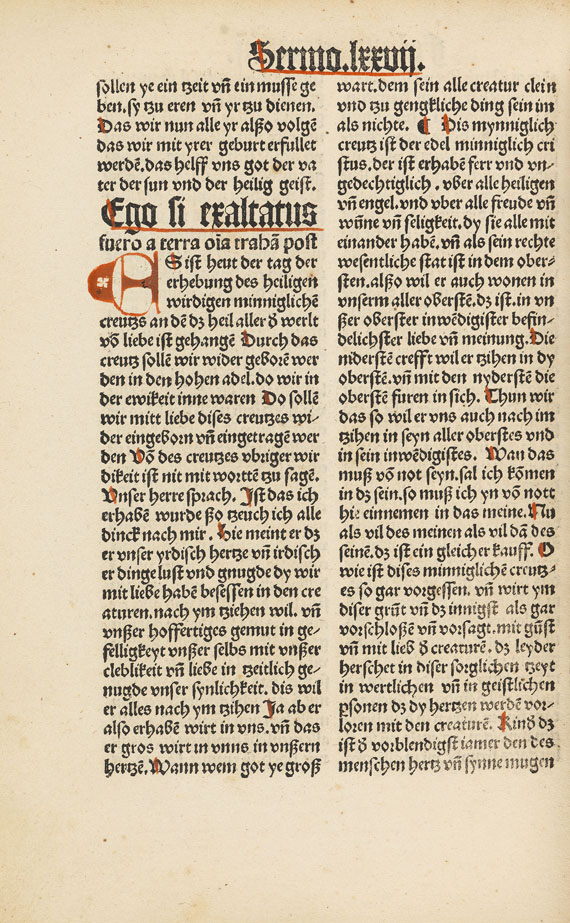 Sermo.lxxvij.
sollen ye ein tzeit vn̄ ein musse ge
ben.sy tzu eren vn̄ yr tzu dienen.
Das wir nun alle yr alßo volgē
das wir mit yrer geburt erfullet
werdē.das helff vns got der va
ter der sun vnd der heilig geist.
Ego si exaltatus
fuero a terra oīa trahā post
ES ist heut der tag der
erhebung des heiligen
wirdigen minniglichē
creutzs an dē dz heil aller đ werlt
vō liebe ist gehangē Durch das
creutz sollē wir wider geborē wer
den in den hohen adel.do wir in
der ewikeit inne waren Do sollē
wir mitt liebe dises creutzes wi-
der eingeborn vn̄ eingetragē wer
den Vō des creutzes vbriger wir
dikeit ist nit mit worttē tzu sagē.
Vnser herre sprach. Ist das ich
erhabē wurde ßo tzeuch ich alle
dinck nach mir. Hie meint er dz
er vnser yrdisch hertze vn̄ irdisch
er dinge lust vnd gnugde dy wir
mit liebe habē besessen in den cre
aturen.nach ym tziehen wil. vn̄
vnßer hoffertiges gemut in ge-
felligkeyt vnßer selbs mit vnßer
cleblikeit vn̄ liebe in tzeitlich ge-
nugde vnser synlichkeit. dis wil
er alles nach ym tzihen Ja ab er
also erhabē wirt in vns.vn̄ das
er gros wirt in vnns in vnßern
hertzē. Wann wem got ye groß
wart.dem sein alle creatur clein
vnd tzu gengkliche ding sein im
als nichte. ¶ Dis mynniglich
creutz ist der edel minniglich cri
stus.der ist erhabē ferr vnd vn-
gedechtiglich. vber alle heiligen
vn̄ engel.vnd vber alle freude vn̄
wūne vn̄ seligkeit.dy sie alle mit
einander habē.vn̄ als sein rechte
wesentliche stat ist in dem ober-
sten.alßo wil er auch wonen in
vnserm aller oberstē.dz ist.in vn
ßer oberster inwēdigister befin-
delichster liebe vn̄ meinung. Die
niderstē crefft wil er tzihen in dy
oberstē.vn̄ mit den nyderstē die
oberstē furen in sich. Thun wir
das so wil er vns auch nach im
tzihen in seyn aller oberstes vnd
in sein inwēdigistes. Wan das
muß vō not seyn.sal ich kōmen
in dz sein.so muß ich yn vō nott
hie einnemen in das meine. Nu
als vil des meinen als vil dā des
seinē.dz ist ein gleicher kauff. O
wie ist dises minniglichē creutz-
es so gar vorgessen. vn̄ wirt ym
diser grūt vn̄ dz innigst als gar
vorschloßē vn̄ vorsagt.mit gūst
vn̄ mit lieb đ creaturē. dz leyder
herschet in diser sorglichen tzeyt
in wertlichen vn̄ in geistlichen
ꝑsonen dz dy hertzen werdē vor-
loren mit den creaturē. Kinđ dz
ist đ vorblendigst iamer den des
menschen hertz vn̄ synne mugen